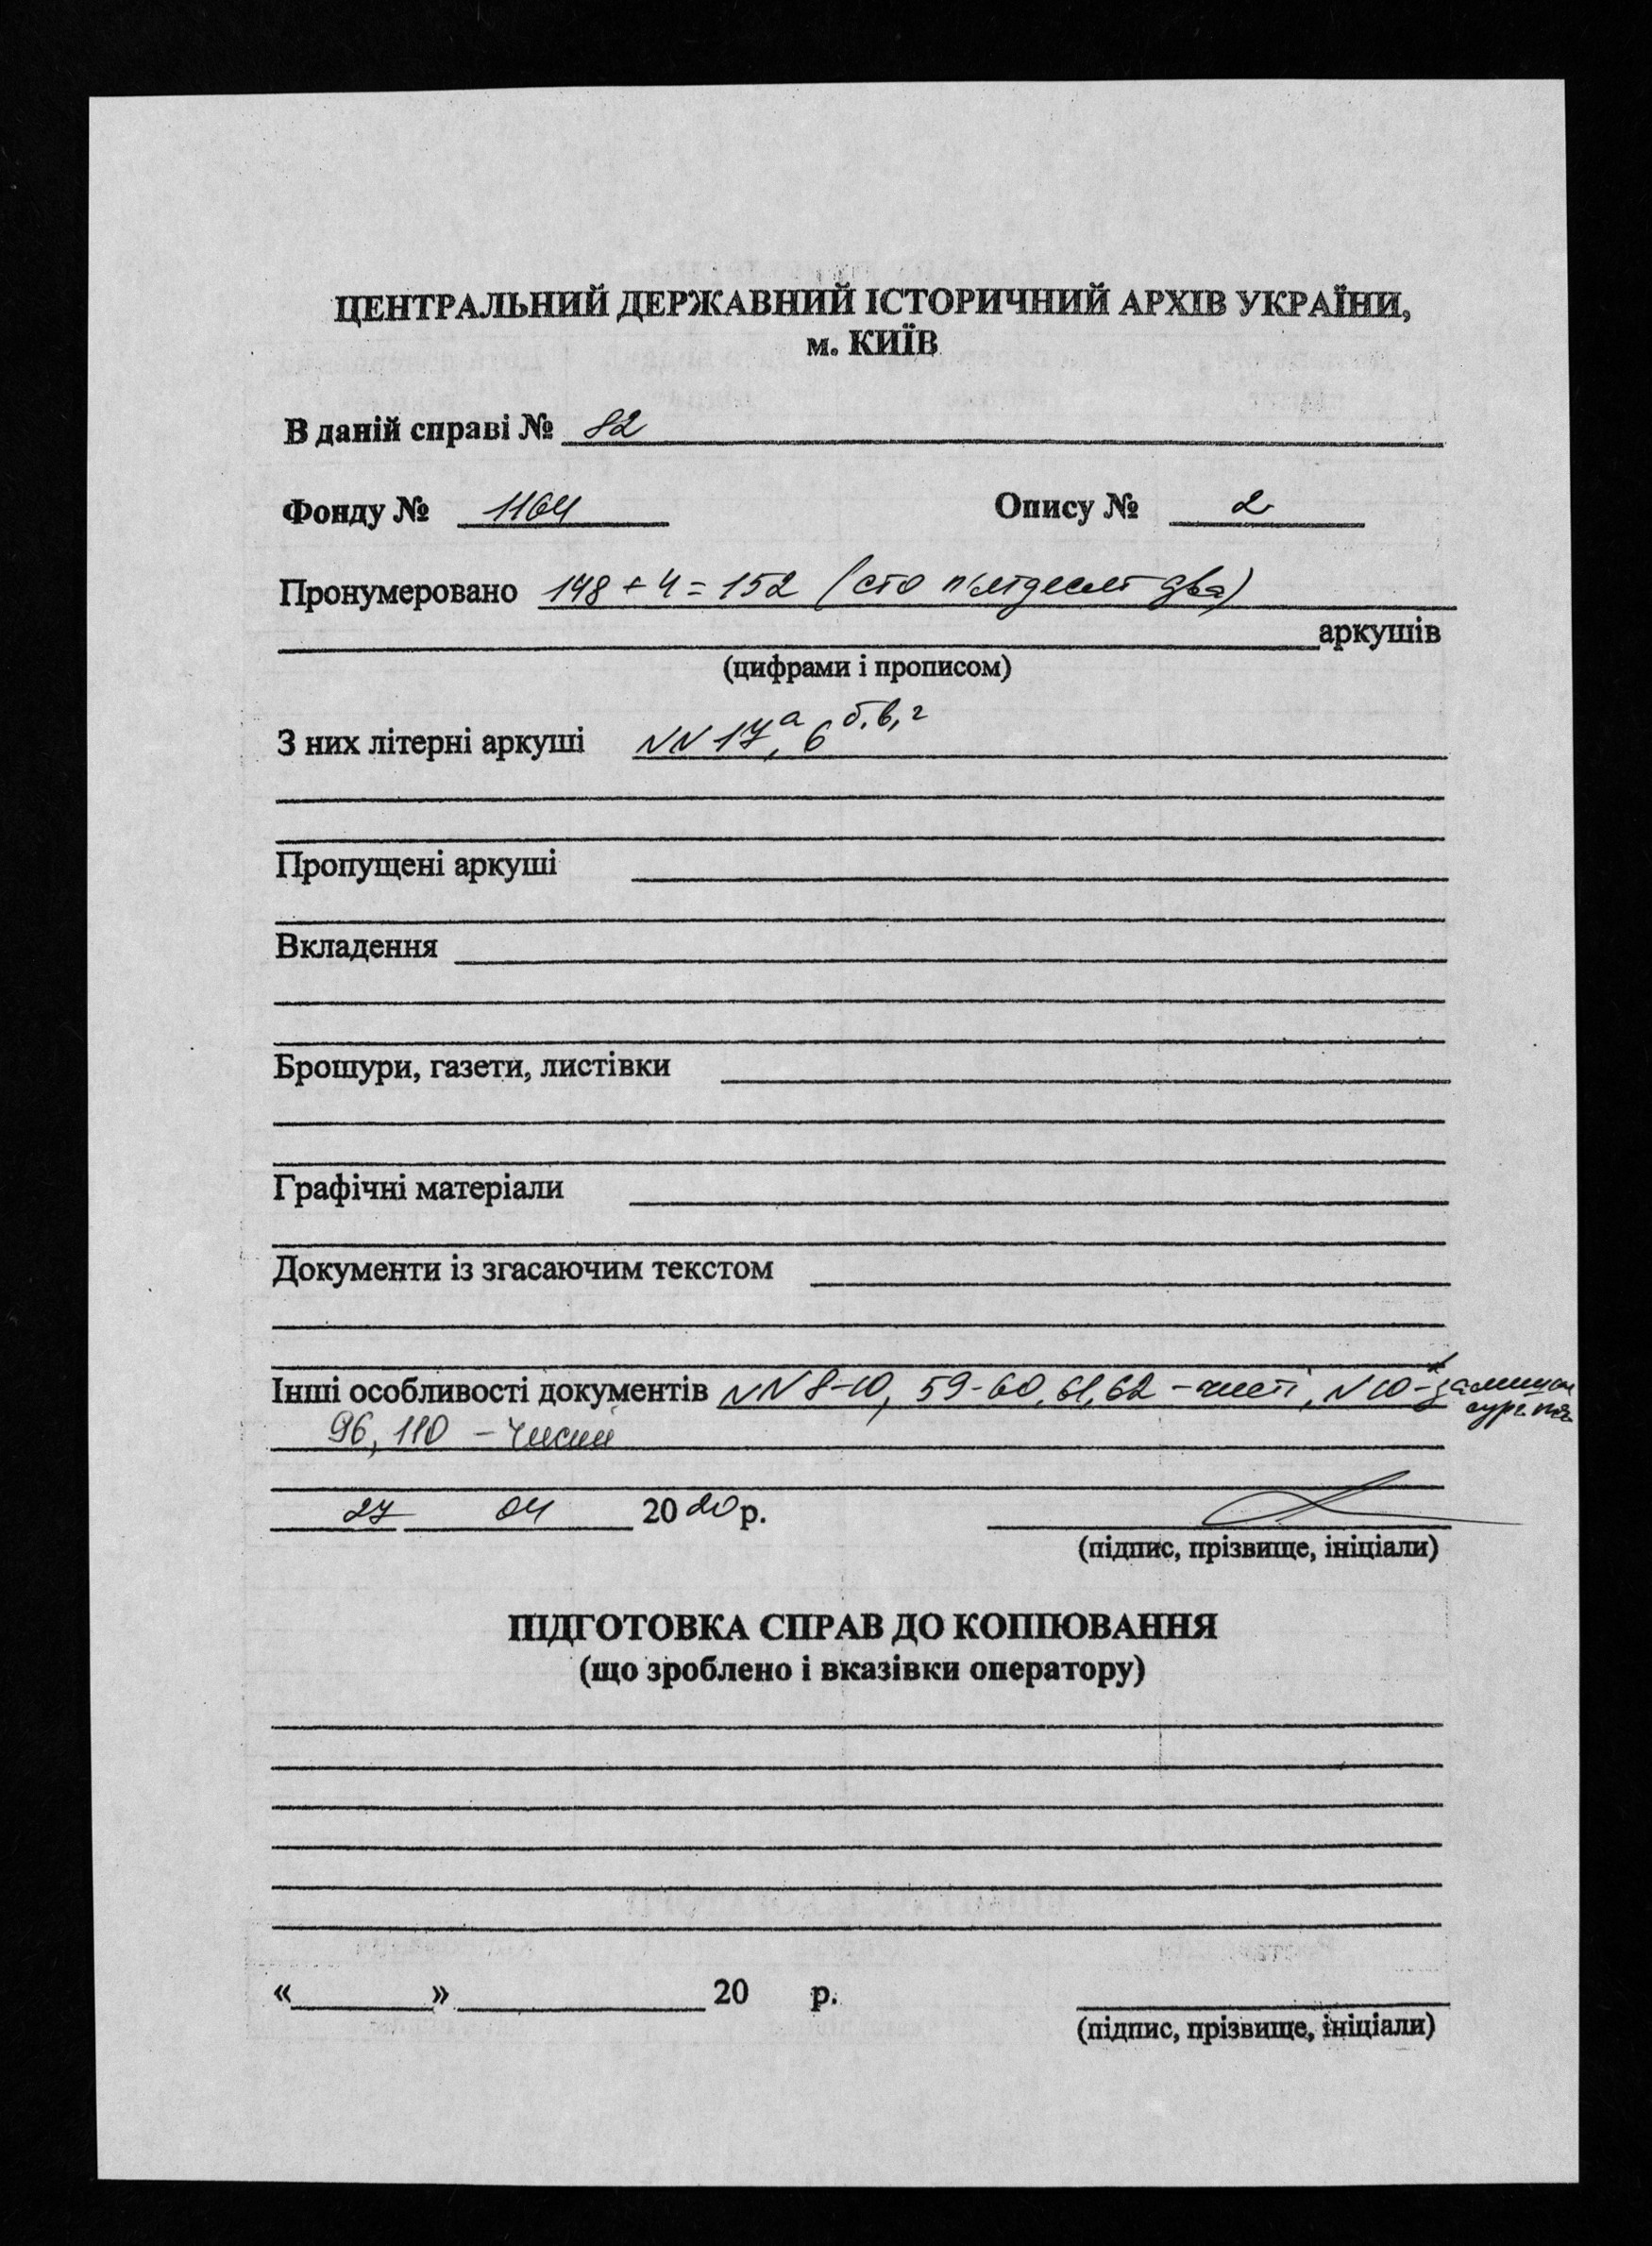 ЦЕНТРАЛЬНИЙ ДЕРЖАВНИЙ ІСТОРИЧНИЙ АРХІВ УКРАЇНИ,
м. КИЇВ
В даній справі № 82
Фонду № 1164 Опису № 2
Пронумеровано 148 + 4 = 152 (сто п'ятдесят два)
аркушів
(цифрами і прописом)
З них літерні аркуші NN 17а, 6б,в,г
Пропущені аркуші
Вкладення
Брошури, газети, листівки
Графічні матеріали
Документи із згасаючим текстом
Інші особливості документів NN 8-10, 59-60, 61, 62 - чисті, N 10 -
96, 110 - чисті
27 04 2020 р.
(підпис, прізвище, ініціали)
ПІДГОТОВКА СПРАВ ДО КОПІЮВАННЯ
(що зроблено і вказівки оператору)
« » 20 р.
(підпис, прізвище, ініціали)